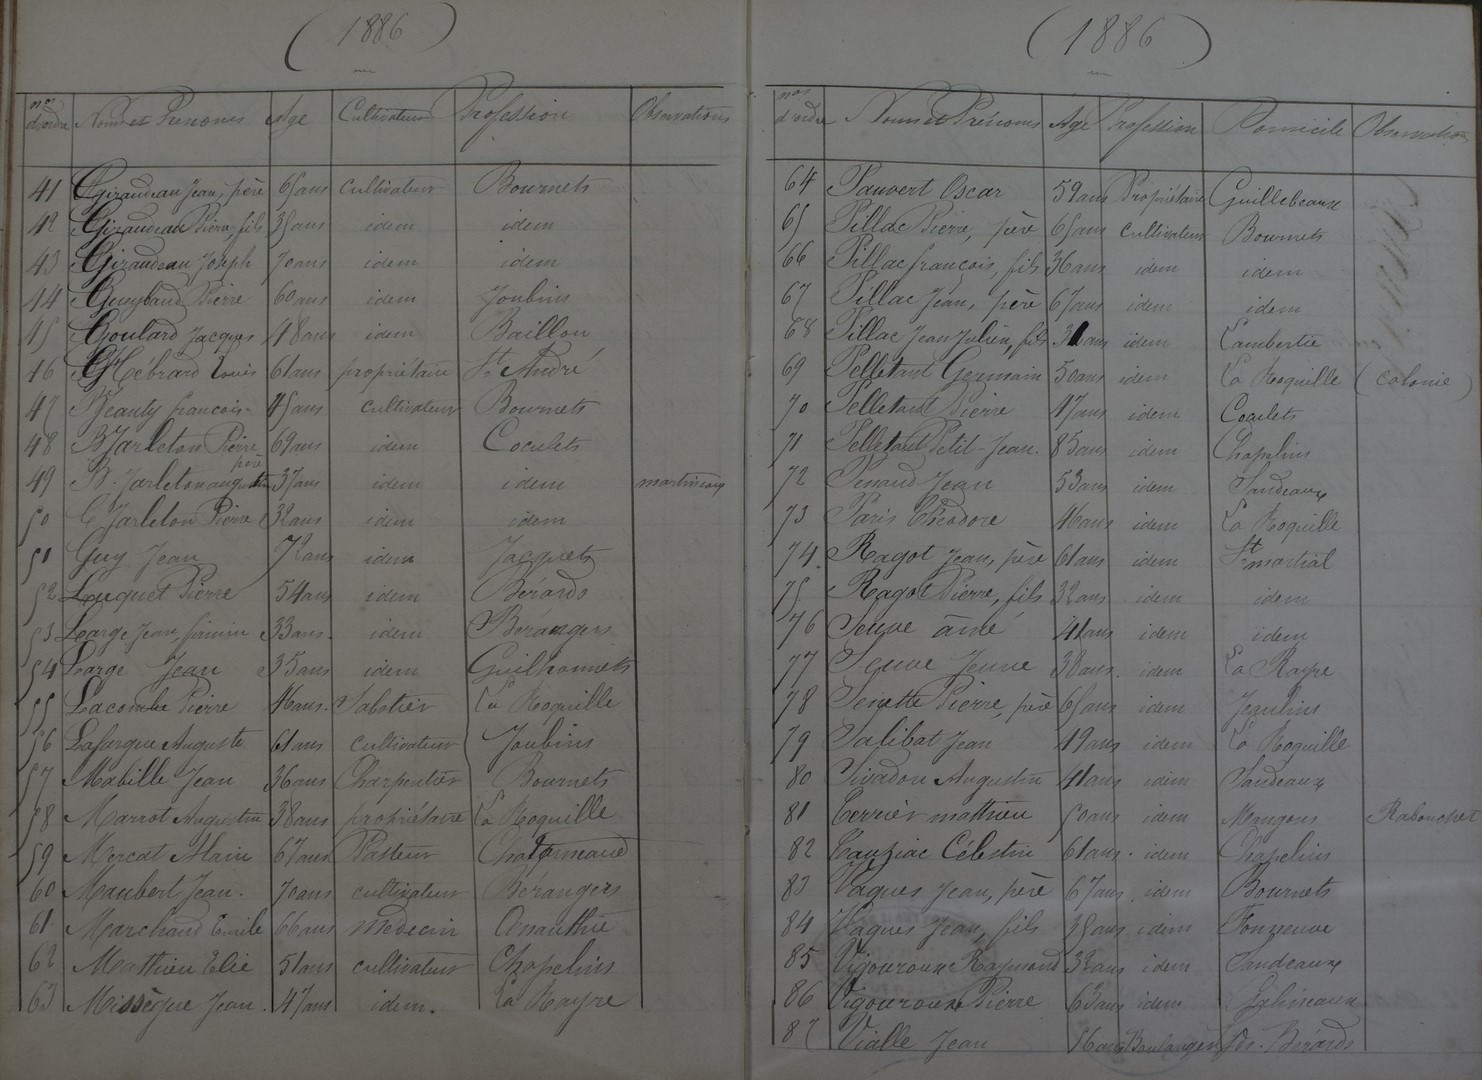 (1886)
nos d'ordre Noms et Prénoms Age Cultivateur Profession Observations
41 Giraudeau Jean, père 65 ans cultivateur Bournets
42 Giraudeau Pierre, fils 35 ans idem idem
43 Giraudeau Joseph 70 ans idem idem
44 Guybaud Pierre 60 ans idem Joubins
45 Goulard Jacques 48 ans idem Baillon
46 Hébrard Louis 61 ans propriétaire St André
47 Beauty francois 45 ans cultivateur Bournets
48 B Jarleton Pierre père 69 ans idem Coculets
49 B. Jarleton augustin 37 ans idem idem
50 C Jarleton Pierre 32 ans idem idem
51 Guy Jean 72 ans idem Jacquets
52 Luquet Pierre 54 ans idem Bérards
53 Large Jean firmin 33 ans. idem Bérangers
54 Large Jean 35 ans idem Guilhonnets
55 Lacombe Pierre 46 ans. Sabotier La Roquille
56 Lafargue Auguste 61 ans cultivateur Joubins
57 Mabille Jean 36 ans Charpentier Bournets
58 Marrot Augustin 38 ans propriétaire La Roquille
59 Mercat Alain 67 ans Pasteur
60 Maubert Jean. 70 ans cultivateur Bérangers
61 Marchand Emile 66 ans Médecin
62 Mathieu Elie 51 ans cultivateur Chapelins
63 Missègue Jean. 47 ans idem. La Rayre
(1886)
nos d'ordre Noms et Prénoms Age Profession Domicile Observation
64 Pauvert Oscar 59 ans Propriétaire Guillebeaux
65 Pillac Pierre, père 65 ans cultivateur Bournets
66 Pillac françois, fils 36 ans idem idem
67 Pillac Jean, père 67 ans idem idem
68 Pillac Jean Julien, fils 31 ans idem Lambertie
69 Pelletant Germain 50 ans idem La Roquille (colonie)
70 Pelletant Pierre 47 ans idem Coculets
71 Pelletant Petit Jean. 85 ans idem Chapelins
72 Penaud Jean 53 ans idem Sandeaux
73 Paris Théodore 46 ans idem La Roquille
74. Ragot Jean, père 61 ans idem St martial
75 Ragot Pierre, fils 32 ans idem idem
76 Seuve ainé 41 ans idem idem
77 Seuve Jeune 38 ans. idem La Rayre
78 Pierre, père 65 ans idem
79 Salibat Jean 49 ans idem La Roquille
80 Sivadon Augustin 41 ans idem Sandeaux
81 Terrier matthieu 50 ans idem Mangons Rabouchet
82 Tauziac Célestin 61 ans. idem Chapelins
83 Vaques Jean, père 67 ans. idem Bournets
84 Vaques Jean, fils 35 ans idem Fonneuve
85 Vigouroux Raymond 32 ans idem Sandeaux
86 Vigouroux Pierre 63 ans idem
87 Vialle Jean 56 ans Boulanger Bérards